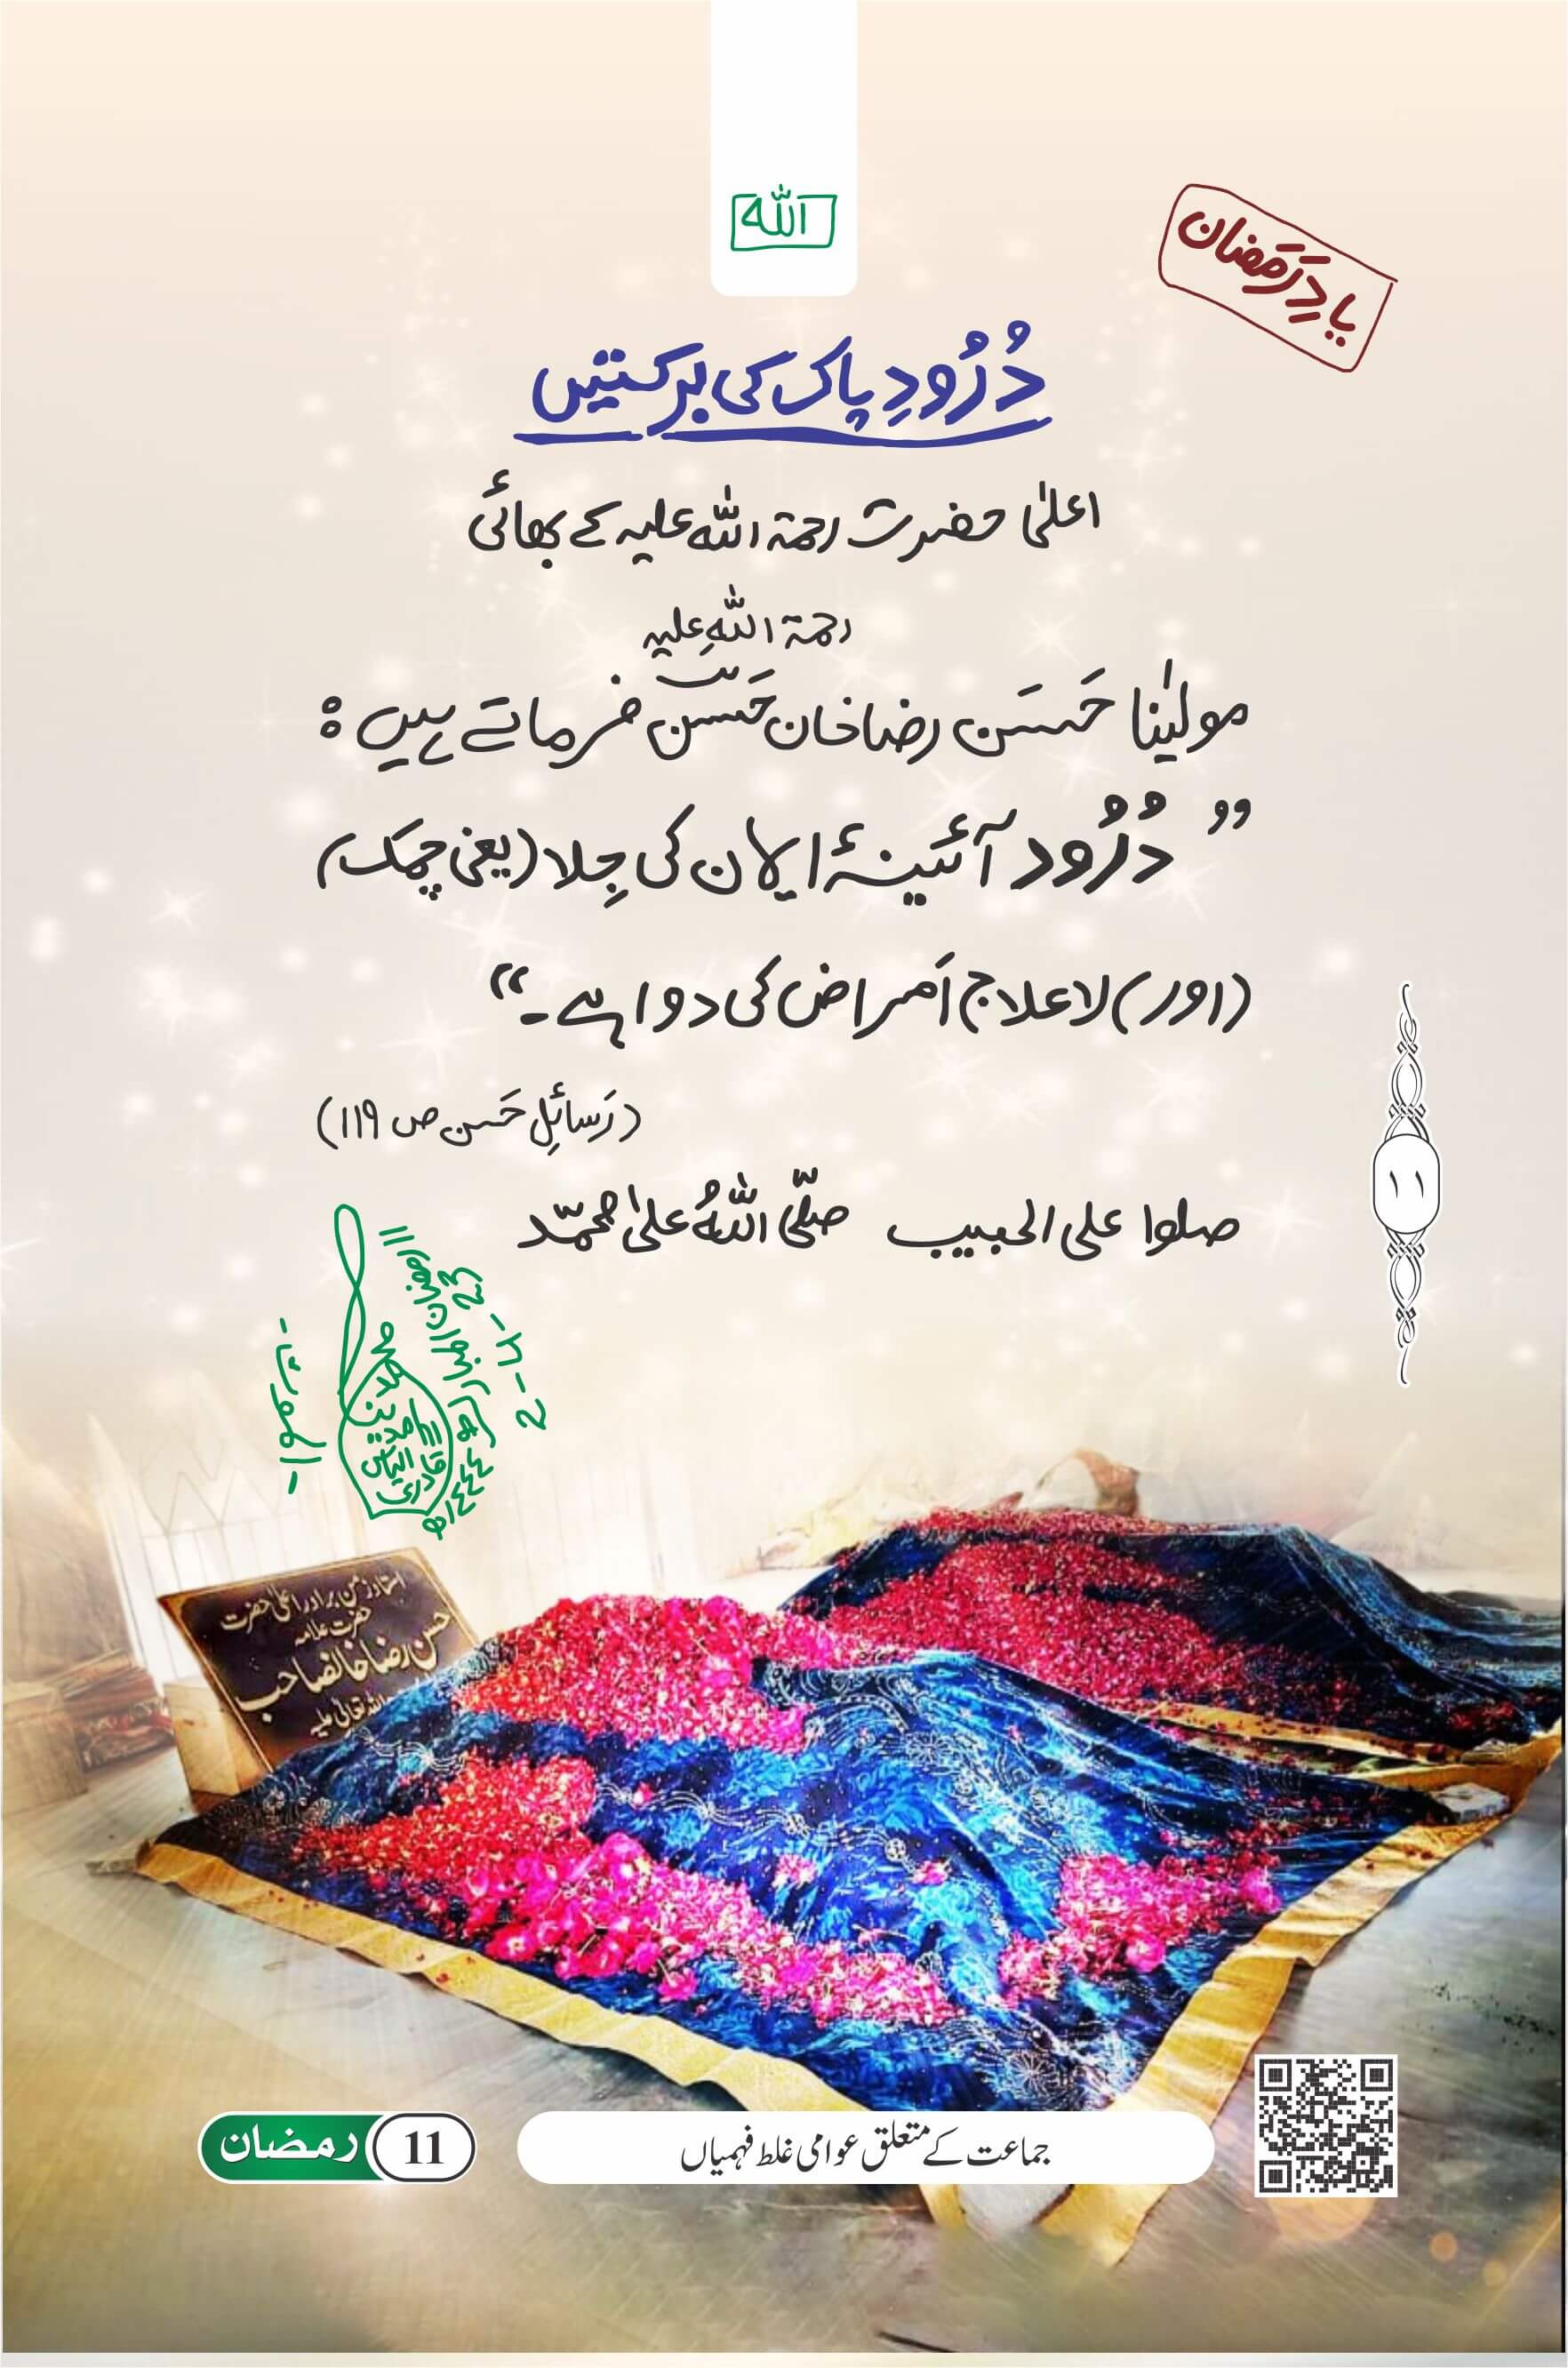 اللہ
یادِ رَمَضان
دُرُودِ پاک کی برکتیں
اعلیٰ حضرت رحمۃ اللہ علیہ کے بھائی
رحمۃ اللہِ علیہ
مولیٰنا حَسَن رضا خان حَسَن فرماتے ہیں:
”دُرُود آئینۂ ایمان کی جِلا (یعنی چمک)
(اور) لاعلاج اَمراض کی دوا ہے۔“
(رَسائلِ حَسن ص ۱۱۹)
صلوا علی الحبیب صلَّی اللہُ علیٰ محمّد
۱۱
۱۱ رمضان المبارک ۱۴۴۴ھ
2-4-23
محمد الیاس قادری
استاد زمن برادر اعلیٰ حضرت
حضرت علامہ
حسن رضا خانصاحب
اللہ تعالیٰ علیہ
11 رمضان
جماعت کے متعلق عوامی غلط فہمیاں